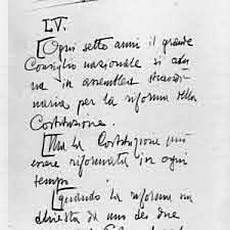 LV.
[Ogni sette anni il grande
Consiglio nazionale si adu-
na in assemblea straordi-
naria per la riforma della
Costituzione.
[Ma la Costituzione può
essere riformata in ogni
tempo
[quando la riforma sia
chiesta da uno dei due